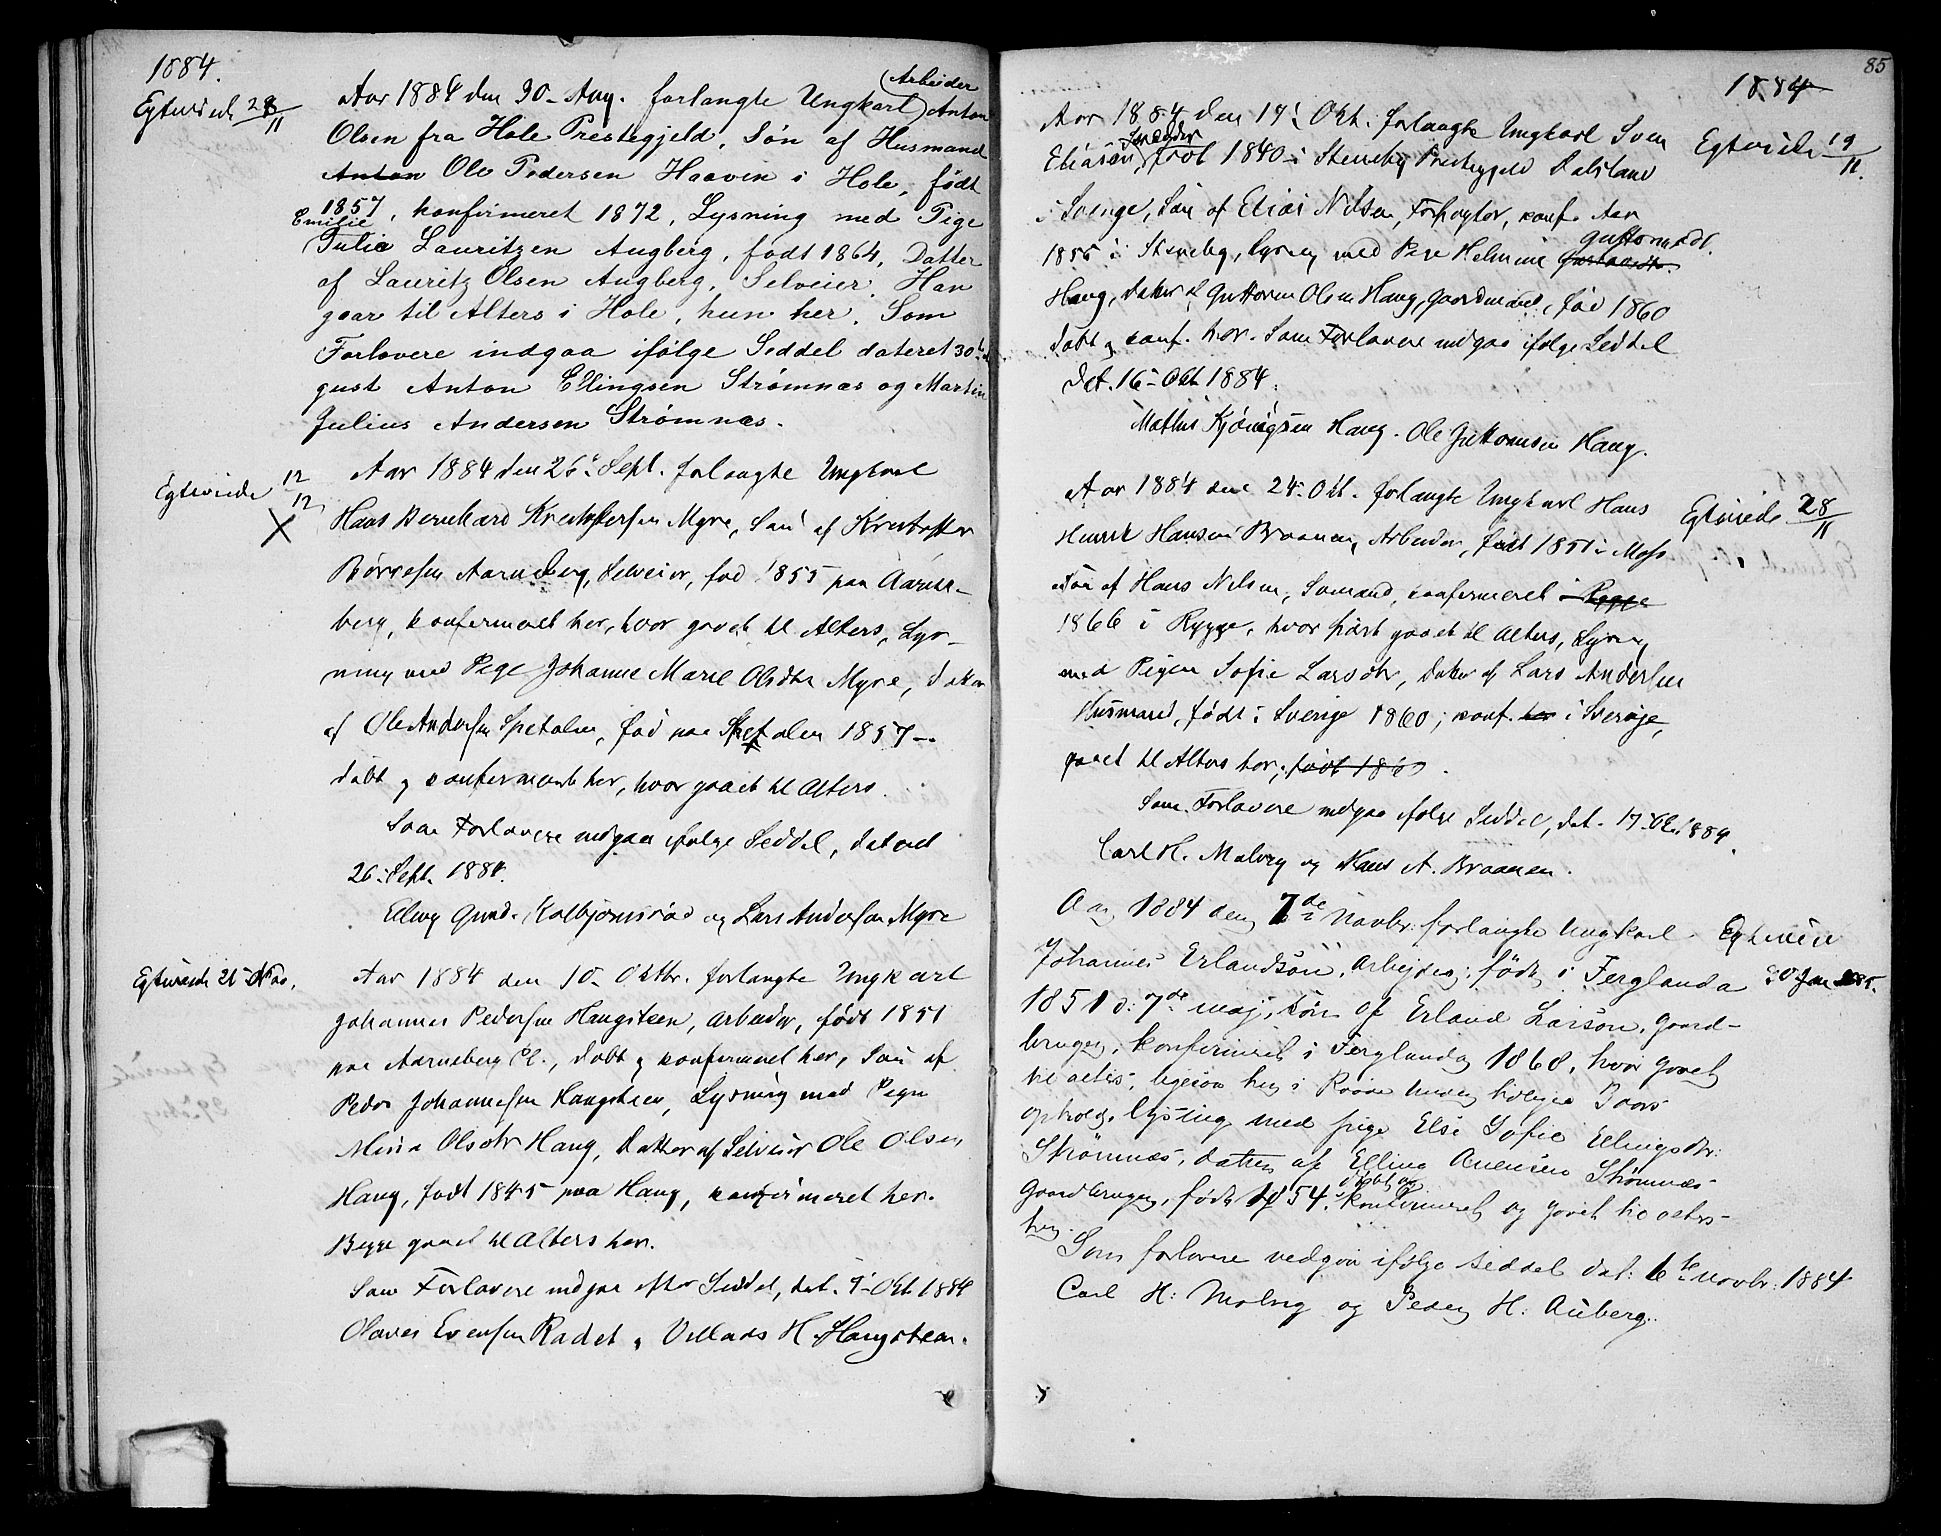 1884.
Egteviede 28/11
Aar 1884 den 30- Aug. forlangte Ungkarl Arbeider Anton
Olsen fra Hole Prestegjeld, Søn af Husmand
Anton Ole Pedersen Haavin i Hole, født
1857, konfirmeret 1872, Lysning med Pige
Emilie
Julie Lauritzen Augberg, født 1864, Datter
af Lauritz Olsen Augberg, Selveier. Han
gaar til Alters i Hole, hun her. Som
Forlovere indgaa ifølge Seddel dateret 30te Au
gust Anton Ellingsen Strømnæs og Martin
Julius Andersen Strømnæs.
Egteviede 12/12
X
Aar 1884 den 26- Sept. forlangte Ungkarl
Hans Bernhard Kristoffersen Myre, Søn af Kristoffer
Børresen Aarneberg, Selveier, fød 1855 paa Aarne-
berg, konfirmeret her, hvor gaaet til Alters, Lys-
ning med Pige Johanne Marie Olsdtr Myre, Datter
af Ole Andersen Spetalen, fød paa Spetalen 1857-
døbt og konfirmeret her, hvor gaaet til Alters.
Som Forlovere indgaa ifølge Seddel, dateret
26- Sept. 1884.
Elling Gund. Kolbjørnsrød og Lars Andersen Myre
Egteviede 21- Nov.
Aar 1884 den 10- Oktbr. forlangte Ungkarl
Johannes Pedersen Haugsteen, Arbeider, født 1851
paa Aarneberg Ei., døbt og konfirmeret her, Søn af
Peder Johannesen Haugsteen, Lysning med Pigen
Mina Olsdtr Haug, Datter af Selveier Ole Olsen
Haug, født 1845 paa Haug, konfirmeret her.
Begge gaaet til Alters her.
Som Forlovere indgaa efter Seddel, dat. 9- Okt 1884
Olaves Evensen Rødet og Villads H. Haugsteen.
85
1884
Aar 1884 den 17- Okt. forlangte Ungkarl Sven
Skrædder
Eliasen, født 1840 i Steneby Prestegjeld Dalsland
Egteviede 19/11.
i Sverige, Søn af Elias Nilsen, Forpagter, konf. Aar
1855 i Steneby, Lysning med Pige Helmine Guttormsdt.
Haug, Datter af Guttorm Olsen Haug, Gaardmand, fød 1860
døbt og konf. her. Som Forlovere indgaa ifølge Seddel
dat. 16- Okt 1884.
Mathis Haug. Ole Guttormsen Haug.
Aar 1884 den 24- Okt. forlangte Ungkarl Hans
Henrik Hansen Braanen, Arbeider, født 1851 i Moss
Egteviede 28/11
Søn af Hans Nilsen, Sømand, konfirmeret i Rygge
1866 i Rygge, hvor først gaaet til Alters, Lysning
med Pigen Sofie Larsdtr, Datter af Lars Andersen
Husmand, født i Sverige 1860, konf. her i Sverige,
gaaet til Alters her, født 1860.
Som Forlovere indgaa ifølge Seddel, dat. 17- Okt 1884.
Carl H. Malvig og Hans A. Braanen.
Aar 1884 den 7de Novbr: forlangte Ungkarl
Johannes Erlandsøn, Arbejder, født i Ferglanda
Egteviet
30 Jan 1885.
1851 d: 7de maj, Søn af Erland Larsøn, gaard-
bruger, konfirmeret i Ferglanda 1868, hvor gaaet
til alters, ligesom her i Raade under tidligere 3 aars
ophold. Lysning med pige Else Sofie Ellingsdtr:
Strømnæs, datter af Elling Strømnæs
døbt og
Gaardbruger, født 1854. konfirmeret og gaaet til alters
her.
Som forlovere vedgaa ifølge seddel dat: 6te novbr: 1884
Carl H: Malvig og Peder H: Auberg.